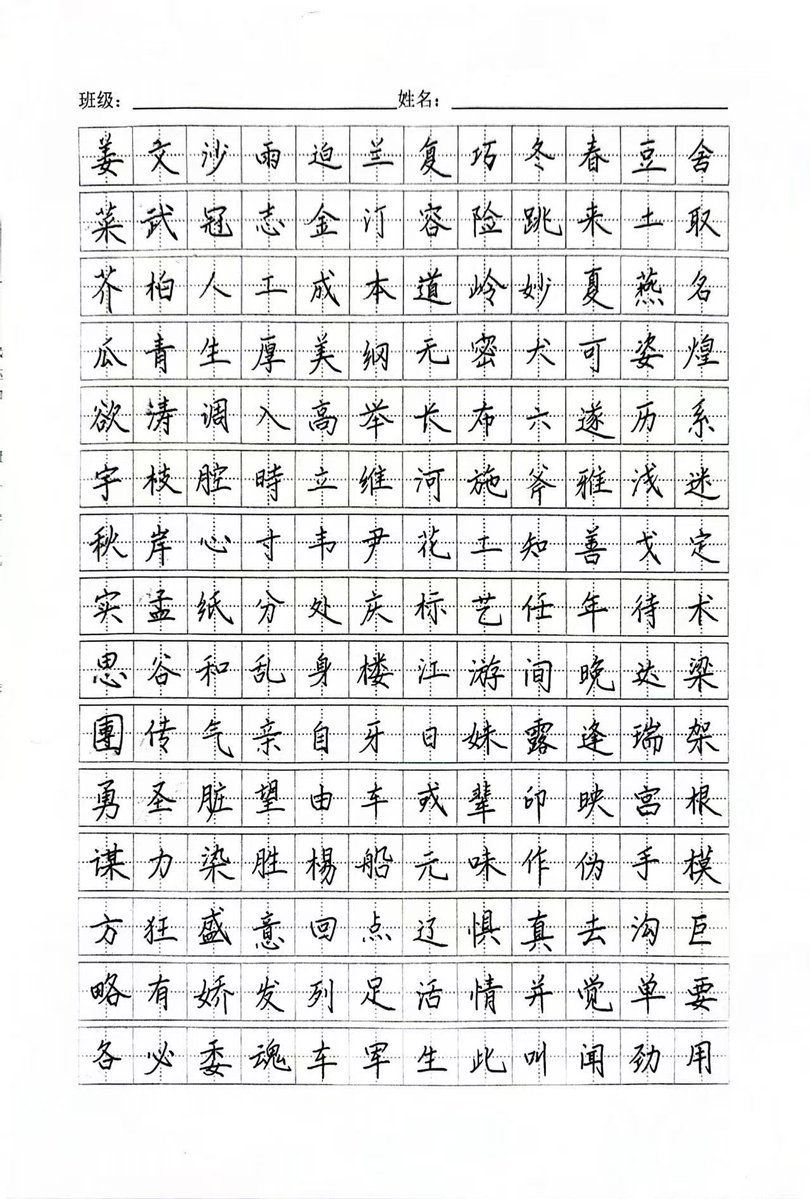 班级: 姓名:
姜文沙雨迫兰复巧冬春豆舍
菜武冠志金汀容险跳来土取
芥柏人工成本道岭妙夏燕名
瓜青生厚美纲无密犬可姿煌
欲涛调入高举长布六遂历系
宇枝腔時立维河施斧雅浅迷
秋岸心寸韦尹花工知善戈定
实孟纸分处庆标艺任年待术
思谷和乱身楼江游间晚达梁
團传气亲自牙日妹露逢瑞架
勇圣脏望由车或辈印映宫根
谋力染胜楊船元味作伪手模
方狂盛意回点辽惧真去沟巨
略有娇发列足活情并觉单要
各必委魂车军生此叫闻劲用